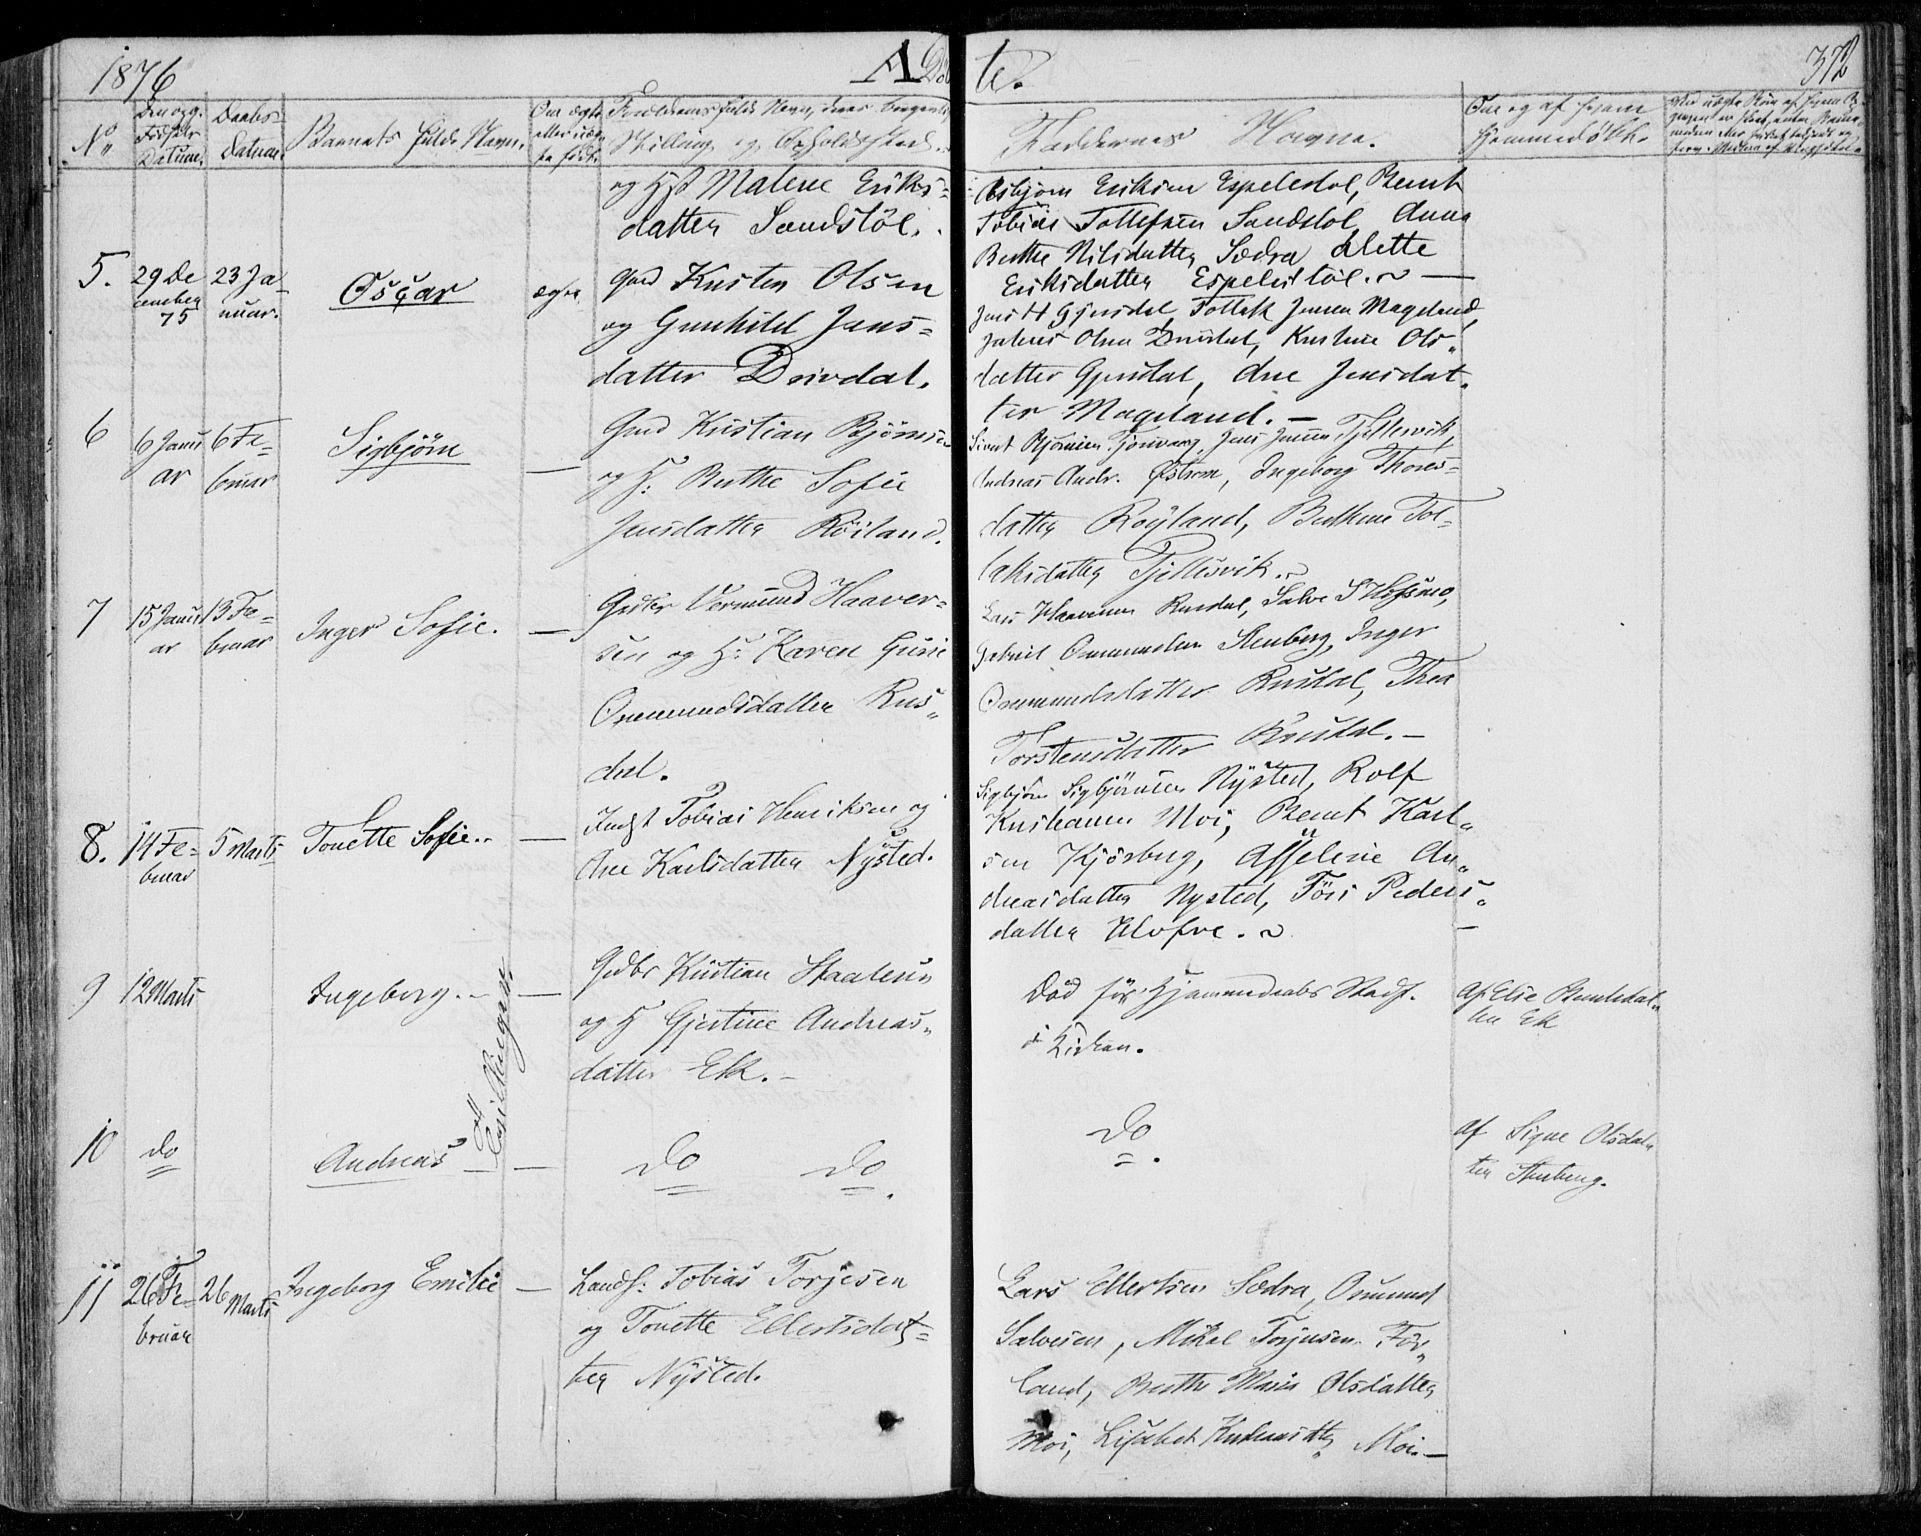 1876
A Döb
te.
372
No
Den opg. Fødsels Datum.
Daabs Datum.
Barnets fulde Navn.
Om ægte eller uægte født.
Forældrenes fulde Navn, deres borgerlige Stilling og Opholdssted.
Faddernes Navne.
Om og af hvem hjemmedøbt.
og Hst Malene Eriks=
datter Sandstöl.
Asbjörn Eriksen Espelestöl, Bernt
Tobias Tollefsen Sandstöl, Anna
Berthe Nilsdatter Sædra Alette
Eriksdatter Espelestöl. —
5. 29 De
cember
75
23 Ja
nuar.
Oscar
ægte
Gmd Kristen Olsen
og Gunhild Jens=
datter Drivdal.
Jens H Gjerdal, Tollak Jensen Mageland
Jakob Olsen Drivdal, Kristine Ols„
datter Gjerdal, Ane Jensdat„
ter Mageland. —
6
6 Janu
ar
6 Fe=
bruar
Sigbjörn
—
Gmd Kristian Björnsen
og H: Berthe Sofie
Jensdatter Röiland.
Sivert Björnsen Tjomvang, Jens Jensen Tjellesvik,
Andreas Andr. Östrem, Ingeborg Thores=
datter Röyland, Berthine Tol=
laksdatter Tjellesvik.
7
15 Janu
ar
13 Fe=
bruar
Inger Sofie.
—
Gdbr Vermund Haaver=
sen og H: Karen Gurie
Ommundsdatter Rus„
dal.
Lars Haaversen Rusdal, Salve S Hofsmo,
Gabriel Ommundsen Stenberg, Inger
Ommundsdatter Rusdal, Thea
Torstensdatter Rusdal. —
8.
14 Fe=
bruar
5 Marts
Tonette Sofie.
—
Indst Tobias Henriksen og
Ane Karlsdatter Nÿsted.
Sigbjörn Sigbjörnsen Nÿsted, Rolf
Kristiansen Moi, Bernt Karl„
sen Kjörberg, Asseline An„
dreasdatter Nysted, Peders„
datter —
9
12 Marts
Ingeborg.
—
Gdbr Kristian
og H Gjertine Andreas„
datter Ek. —
Död för Hjemmedaabs Stadf.
i Kirken.
Af Elie Berntsdat„
ter Ek
Tvillinger.
10
do
Andreas
—
do do
do
af Signe Olsdat„
ter Stenberg.
11
26 Fe
bruar
26 Marts
Ingeborg Emilie
—
Landh: Tobias Torjesen
og Tonette Ellertsdat=
ter Nÿsted.
Lars Ellertsen Sædra, Osmund
Salvesen, Mikal Torjusen För„
land, Berthe Maria Olsdatter
Moi, Lisabet Moi. —